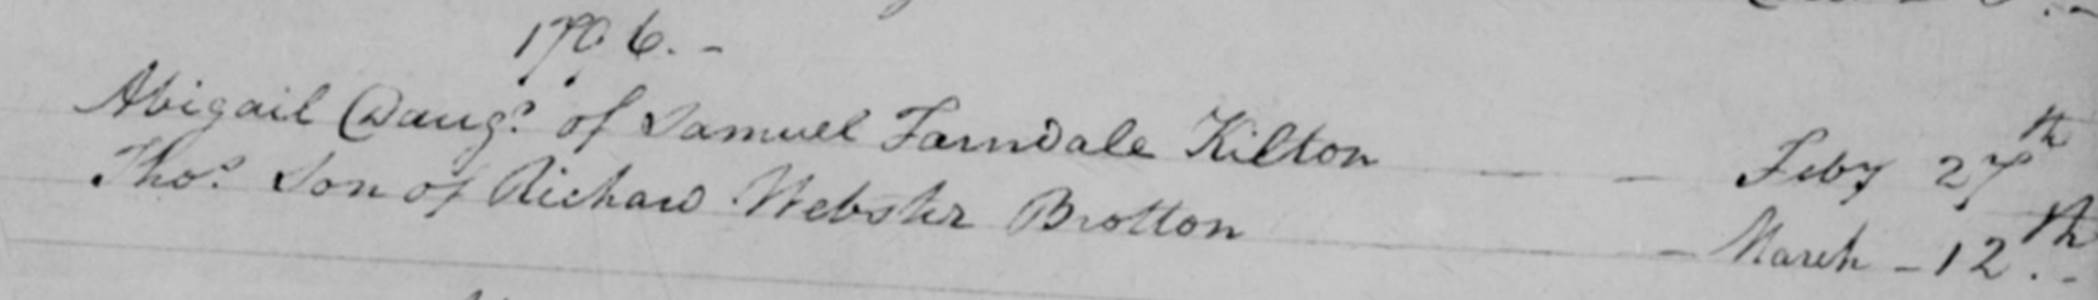 1796. -
Abigail Daugr. of Samuel Farndale Kilton - - Feby 27th
Thos. Son of Richard Webster Brotton - March - 12th. -